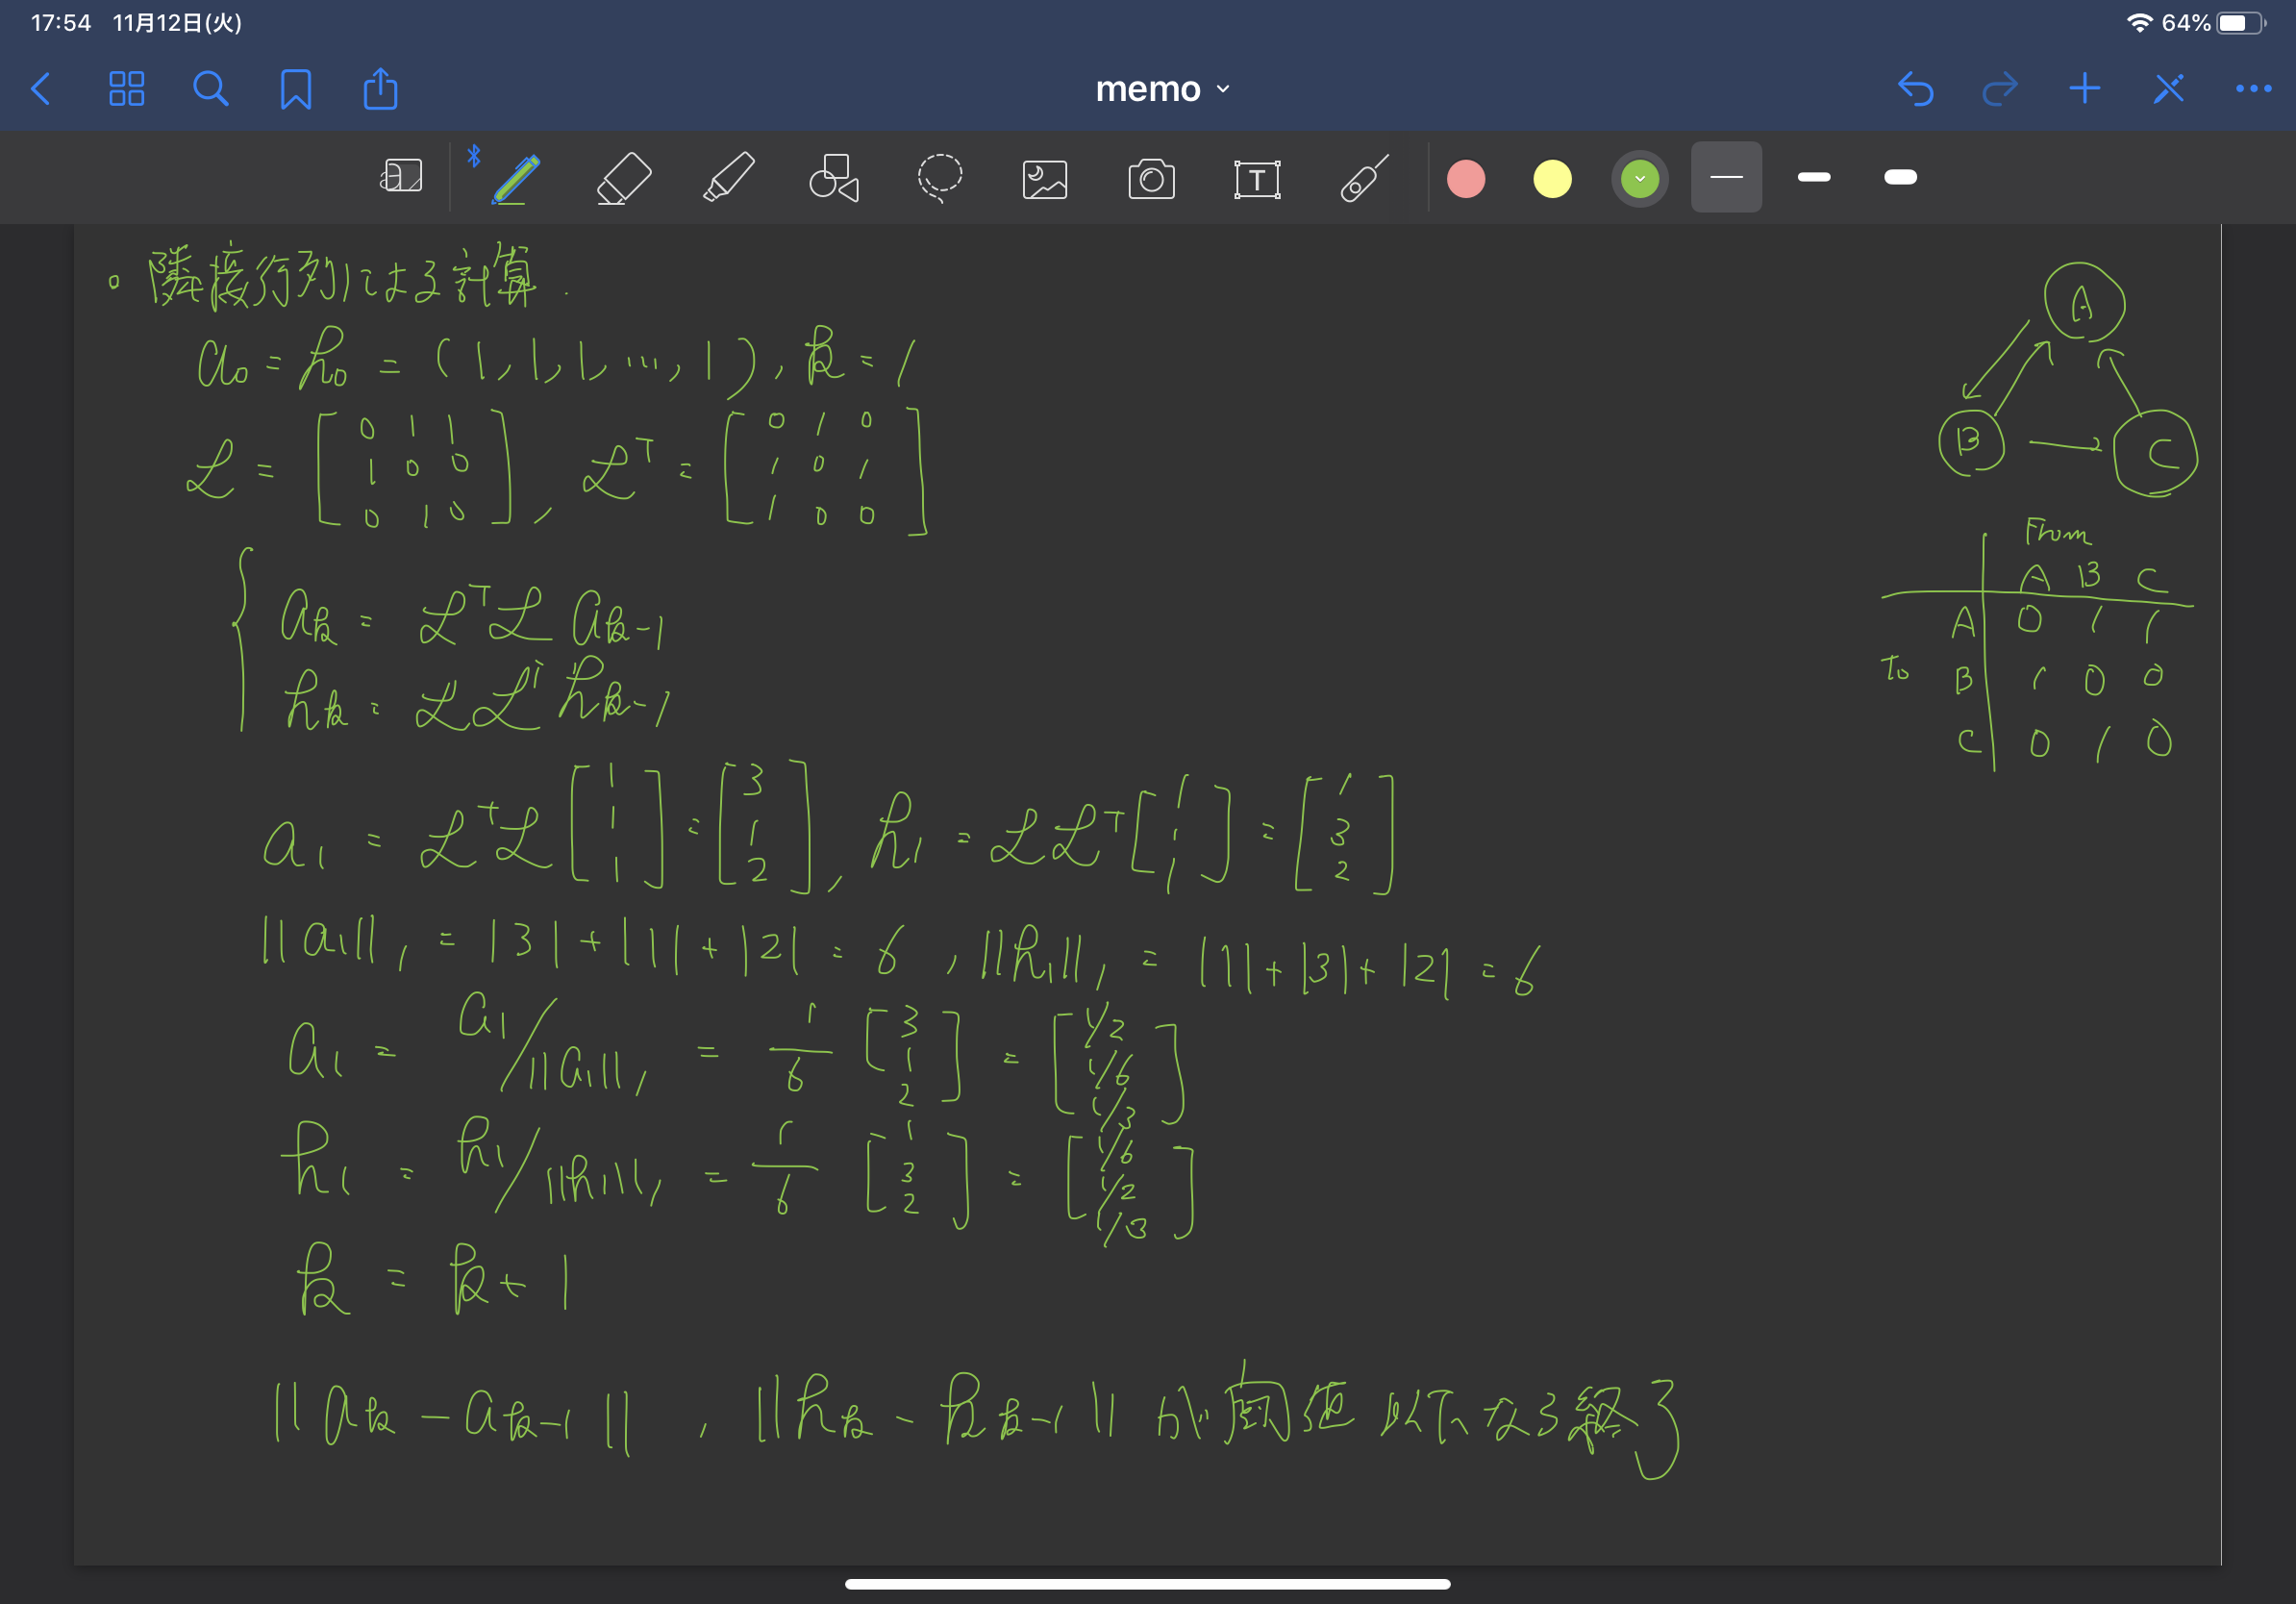 17:54 11月12日(火) 64%
memo
T
。隣接行列による計算.
a₀ = h₀ = (1, 1, 1, …, 1), k = 1
L = [0 1 1
1 0 0
0 1 0], Lᵀ = [0 1 0
1 0 1
1 0 0]
aₖ = LᵀL aₖ₋₁
hₖ = LLᵀ hₖ₋₁
a₁ = LᵀL [1 1 1] = [3 1 2], h₁ = LLᵀ [1 1 1] = [1 3 2]
||a₁||₁ = |3| + |1| + |2| = 6, ||h₁||₁ = |1| + |3| + |2| = 6
a₁ = a₁/||a₁||₁ = 1/6 [3 1 2] = [1/2 1/6 1/3]
h₁ = h₁/||h₁||₁ = 1/6 [1 3 2] = [1/6 1/2 1/3]
k = k + 1
||aₖ − aₖ₋₁||, ||hₖ − hₖ₋₁|| が閾値以下なる終了
A
B
C
From
A B C
A 0 1 1
To B 1 0 0
C 0 1 0